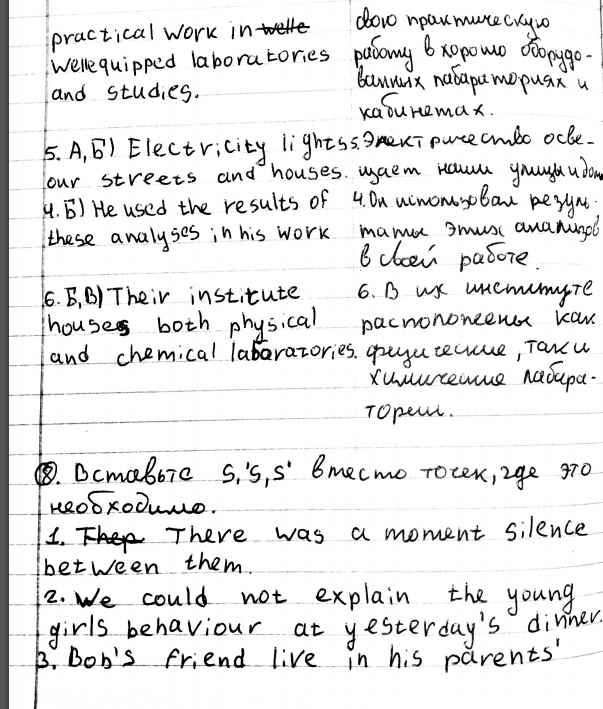 practical work in
wellequipped laboratories
and studies.
5. А,Б) Electricity lights
our streets and houses.
4. Б) He used the results of
these analyses in his work
6. Б,В) Their institute
houses both physical
and chemical labaratories.
свою практическую
работу в хорошо оборудо-
ванных лабараториях и
кабинетах.
5. Электричество осве-
щает наши улицы и дома
4. Он использовал резуль-
таты этих анализов
в своей работе.
6. В их институте
расположены как
физические, так и
химические лабара-
тории.
8. Вставьте s,'s,s' вместо точек, где это
необходимо.
1. There was a moment silence
between them.
2. We could not explain the young
girls behaviour at yesterday's dinner.
3. Bob's friend live in his parents'